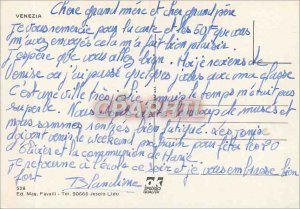 Chère grand mère et cher grand père
VENEZIA
je vous remercie pour la carte et les 50F que vous
m'avez envoyés cela m'a fait bien plaisir.
J'espère que vous allez bien. Moi je reviens de
Venise où j'ai passé quelques jours avec ma classe
C'est une ville très jolie, mais le temps n'était pas
superbe. Nous avons visité beaucoup de musées et
nous sommes rentrés bien fatigués. Les
doivent venir le weekend prochain pour fêter les 80
et la communion de
je retourne à l'école ce soir et je vous embrasse bien
fort
Blandine
528
Ed. Mas. Favalli - Tel. 90666 Jesolo Lido